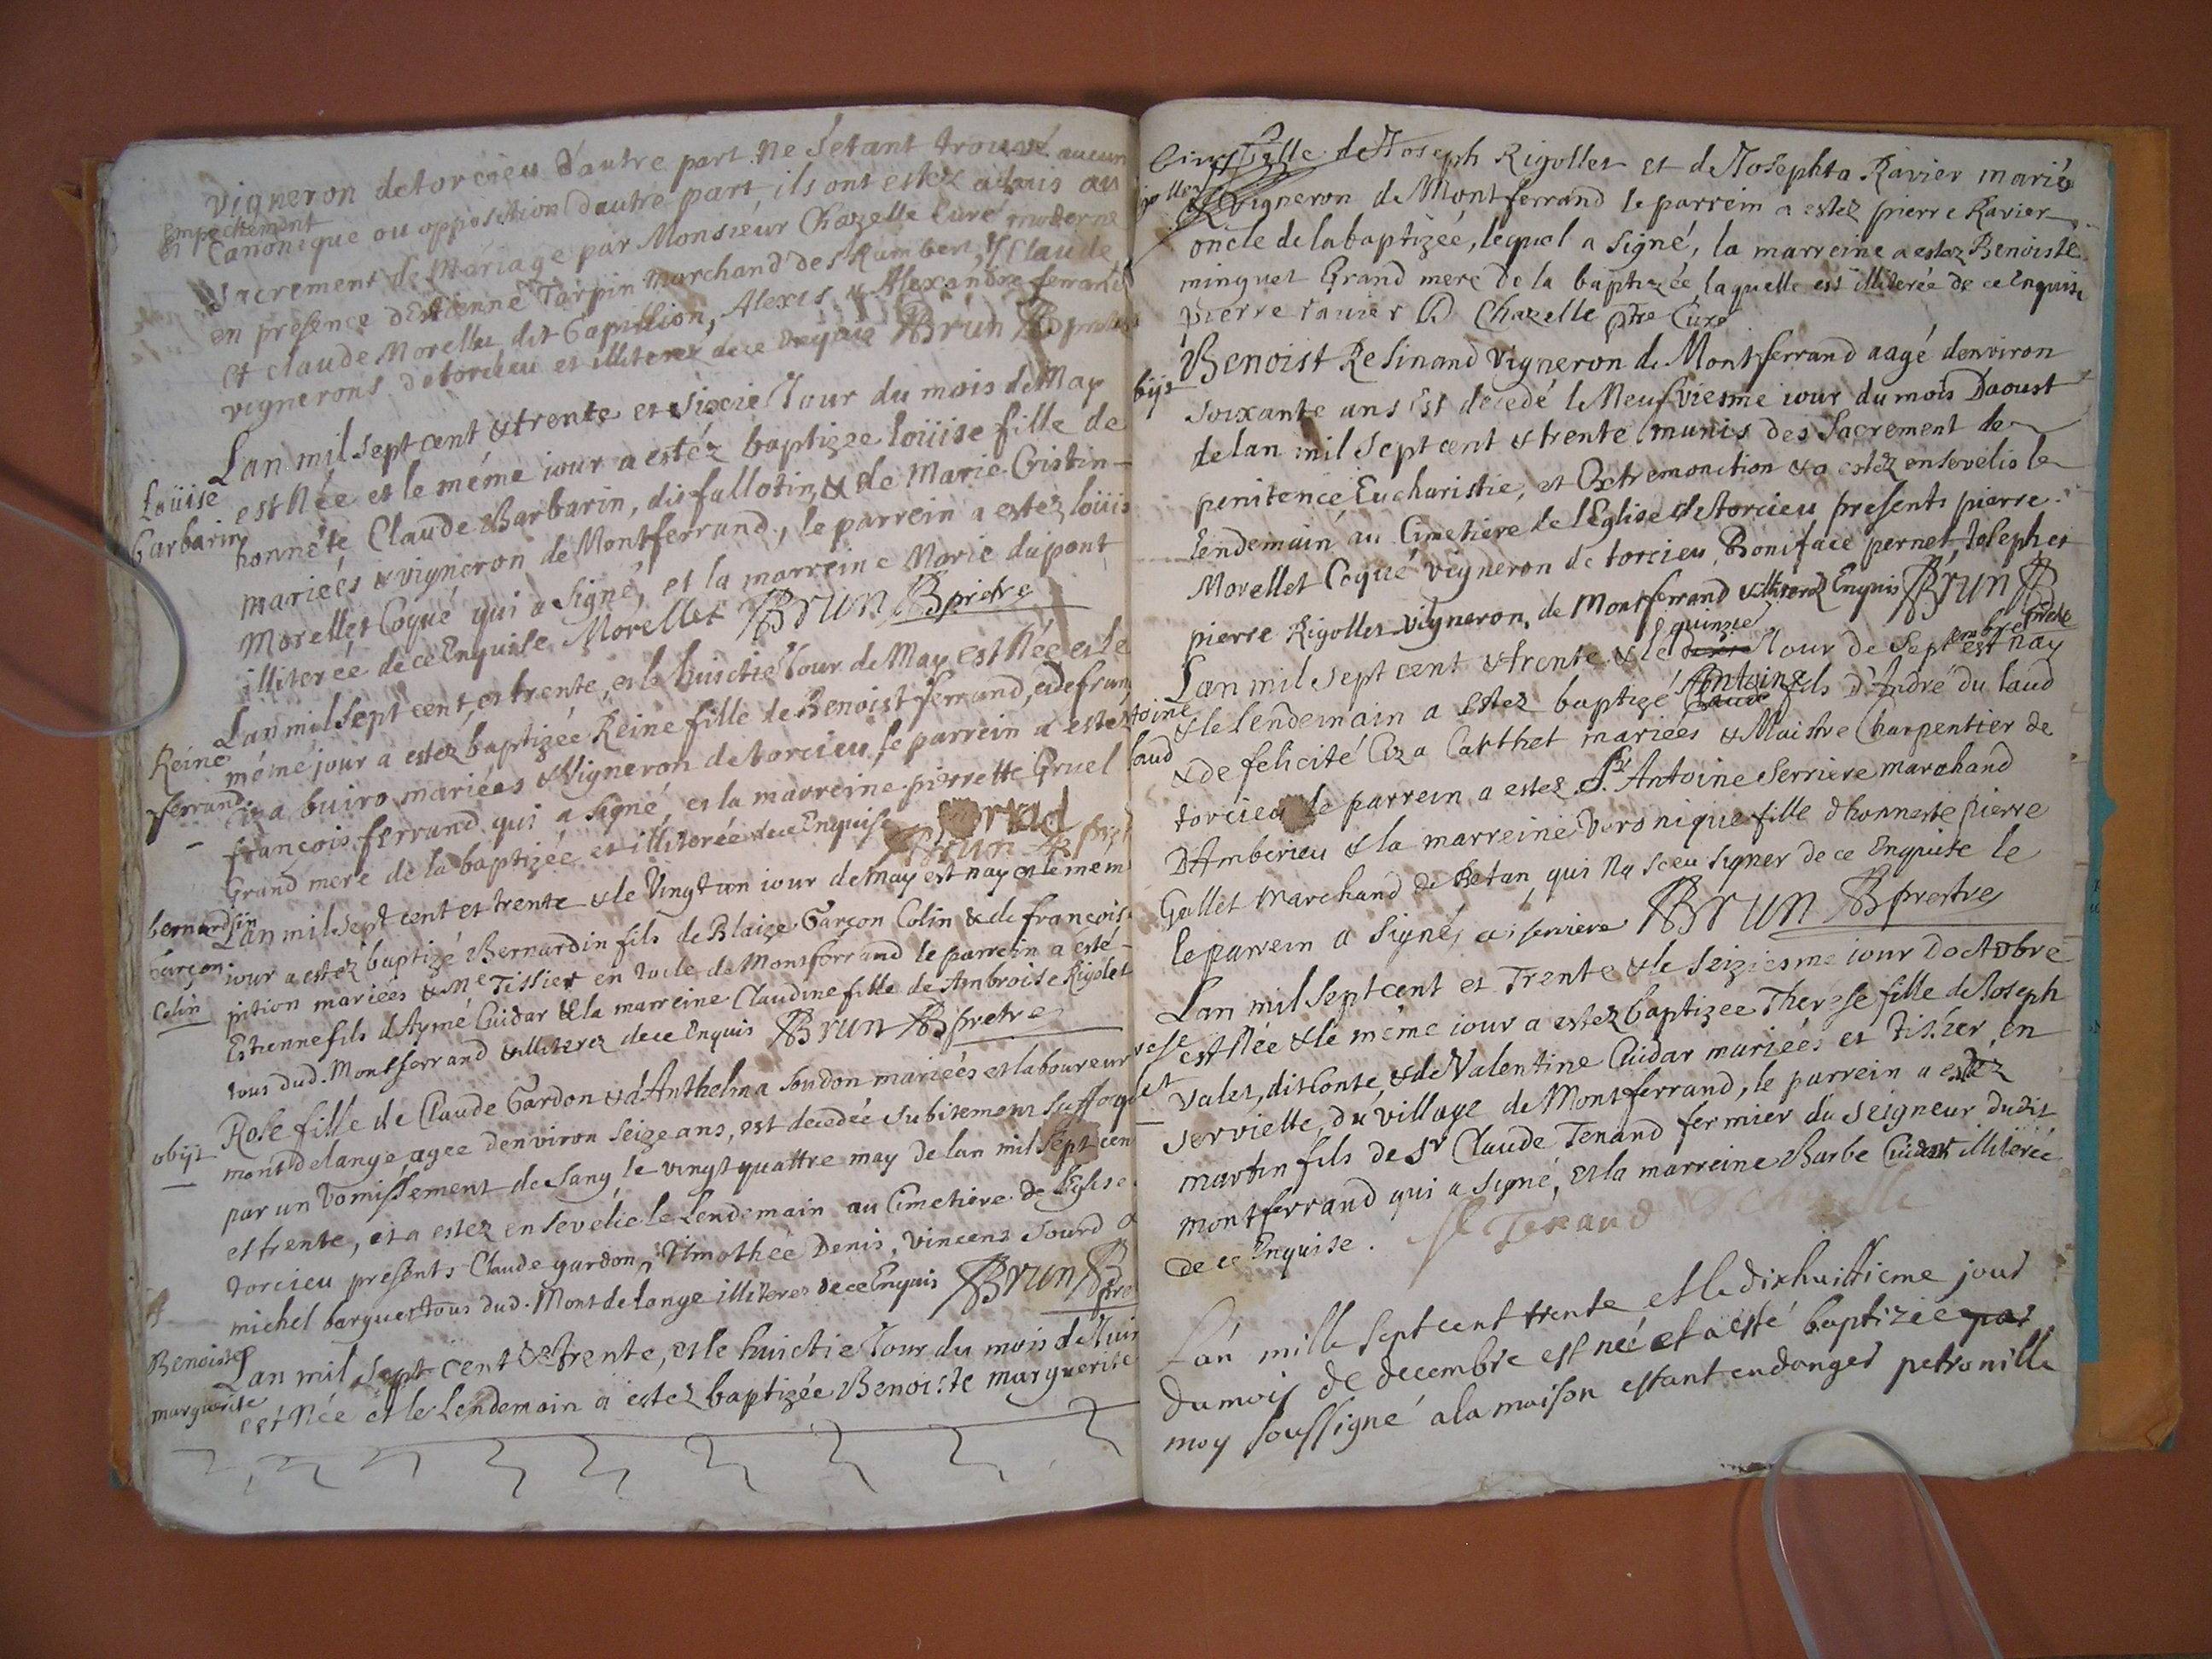 vigneron de torcieu d'autre part. Ne s'etant trouvé aucun
empechement
Canonique ou opposition d'autre part, ils ont estez admis au
sacrement de Mariage par Monsieur Chazelle Curé moderne
en presence d'Estienne Tarpin marchand de st Rambert, Claude
et claude Morellet dit Capillion, Alexis & Alexandre ferrand
vignerons de torcieu et illiterez de ce Enquis Brun prestre
Lan mil sept cent & trente et sixie Jour du mois de May
est Née et le méme iour a estéz baptizee loüise fille de
Loüise
Barbarin
honnéte Claude Barbarin, dit fallotin, & de Marie Cristin
mariées & vigneron de Montferrand, le parrein a estez loüis
Morellet Coqué qui a signé, et la marreine Marie dupont
illiterée de ce Enquise Morellet Brun prétre
Lan mil sept cent, et trente, et le huictie Iour de May est Née et le
Reine
ferrand
méme jour a estez baptizée Reine fille de Benoist ferrand, et de fran
ciza buiro mariées & Vigneron de torcieu, le parrein a estéz
françois ferrand qui a signé, et la marreine pierrette Gruel
Grand mere de la baptizée et illiterée de ce Enquise
Brun
bernardin
Garçon
Colin
Lan mil sept cent et trente & le Vingt un iour de may est nay et le mem
iour a estéz baptizé Bernardin fils de Blaize Garçon Colin & de françoise
pition mariées & Me Tissier en toile de Montferrand le parrein a esté
Estienne fils d'Aymé Cuidar & la marreine Claudine fille de Ambroise Rigolet
tous dud. Montferrand & illiterez de ce Enquis Brun prétre
obijt
Rose fille de Claude Gardon & d'Anthelma Sondon mariées et laboureur
mont delange agee denviron seize ans, est decedée subitement suffoqué
par un Vomissement de sang, le vingt quattre may de lan mil sept cen
et trente, et a estez ensevelie le Lendemain au Cimetiere de l'Eglise
torcieu presents Claude gardon, Timothée Denis, vincent sourd
michel barquet tous dud. Mont de lange illiteres de ce Enquis Brun
Benoiste
marguerite
Lan mil sept cent & trente, et le huictie Iour du mois de Iuin
est Née et le Lendemain a estez baptizée Benoiste marguerite
fille de Joseph Rigollet et de Josephta Ravier mariés
Vigneron de Montferrand le parrein a estez pierre Ravier
oncle de la baptizée, lequel a signé, la marreine a estez Benoiste
minguet Grand mere de la baptizée, laquelle est illiterée de ce Enquise
pierre ravier Chazelle ptre Curé
obijt
Benoist Resinand vigneron de Montferrand aagé denviron
soixante ans est decedé le Neufviesme iour du mois Daoust
de lan mil sept cent & trente munis des Sacrement de
penitence, Eucharistie, et Extremonction & a estéz ensevelis le
lendemain au Cimetiere de l'Eglise de torcieu presents pierre
Morellet Coqué vigneron de torcieu, Boniface pernet, Ioseph et
pierre Rigollet vigneron, de Montferrand & illiterez Enquis Brun
prestre
quinzie
Lan mil sept cent & trente & le Iour de septembre est nay
Antoine
& le lendemain a estez baptizé Claude fils d'André du laud
toine
laud
& de felicité Ciza Catthet mariées & Maistre Charpentier de
torcieu le parrein a estez Sr. Antoine Serriere marchand
D'Amberieu & la marreine Veronique fille d'honneste pierre
Gallet Marchand de Betan, qui n'a sceu signer de ce Enquise le
le parrein a signé, serriere Brun prestre
Lan mil sept cent et Trente & le seiziesme iour d'octobre
est Née & le même iour a estez baptizee Therese fille de Ioseph
Valet, dit Conte, & de Valentine Cuidar mariées et tissier en
serviette, du village de Montferrand, le parrein a estéz
martin fils de Sr Claude Tenand fermier du seigneur dudit
montferrand qui a signé, et la marreine Barbe Cuidar illiterée
de ce Enquise. Tenand
L'an mille sept cent trente et le dixhuittieme jour
du mois de decembre est neé et a esté baptizée par
moy soussigné a la maison estant en danger petronille